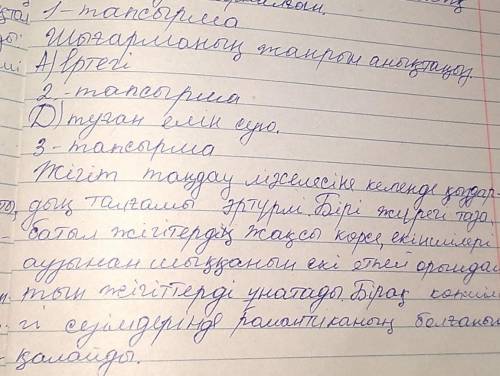 1-тапсырма
Шығарманың жанрын анықтаңыз
А) Ертегі
2-тапсырма
D) туған елін сүю.
3-тапсырма
Жігіт таңдау мәселесіне келенде қыздар-
дың талғамы әртүрлі. Бірі жүрегі таза
батыл жігітердің жақсы көрсе, екіншілері
аузынан шыққанын екі етпей орындай
тын жігіттерді ұнатады. Бірақ көпшіл
гі сезімдерінде романтиканың болғанын
қалайды.